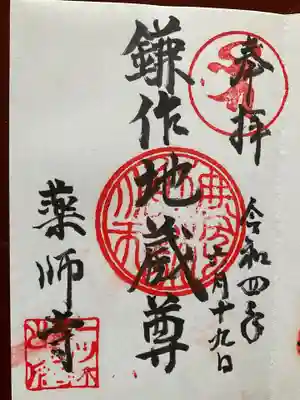 奉拝
令和四年六月十九日
鎌作地蔵尊
薬師寺